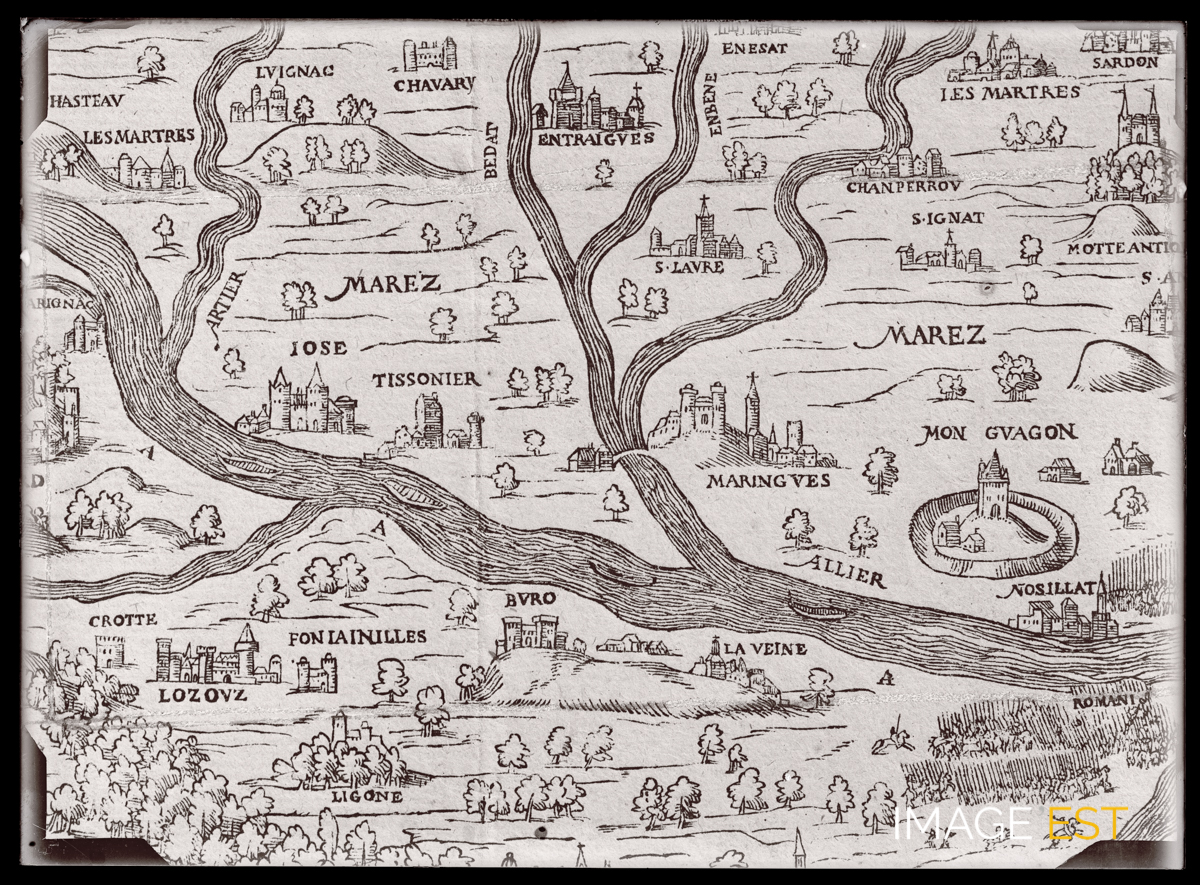 ENESAT
SARDON
LVIGNAC
CHAVARV
HASTEAV
LES MARTRES
LES MARTRES
BEDAT
ENTRAIGVES
ENBENE
CHANPERROV
S·IGNAT
MOTTE ANTIQ
S·LAVRE
S·A
ARTIER
MAREZ
ARIGNAC
MAREZ
IOSE
TISSONIER
MON GVAGON
MARINGVES
A
D
A
ALLIER
NOSILLAT
BVRO
CROTTE
FONTAINILLES
LA VEINE
LOZOVZ
A
ROMANI
LIGONE
IMAGE EST